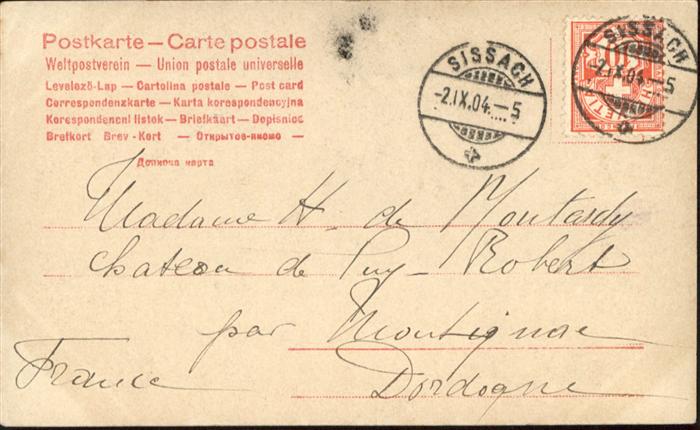 Postkarte — Carte postale
Weltpostverein — Union postale universelle
Levelező-Lap — Cartolina postale — Post card
Correspondenzkarte — Karta korespondencyjna
Korespondencni listok — Briefkaart — Dopisnica
Brefkort Brev-Kort — Открытое письмо —
Дописна карта
SISSACH
-2.IX.04.-5
SISSACH
-2.IX.04.-5
Madame H. de Montardy
chateau de Puy-Robert
par Montignac
France Dordogne